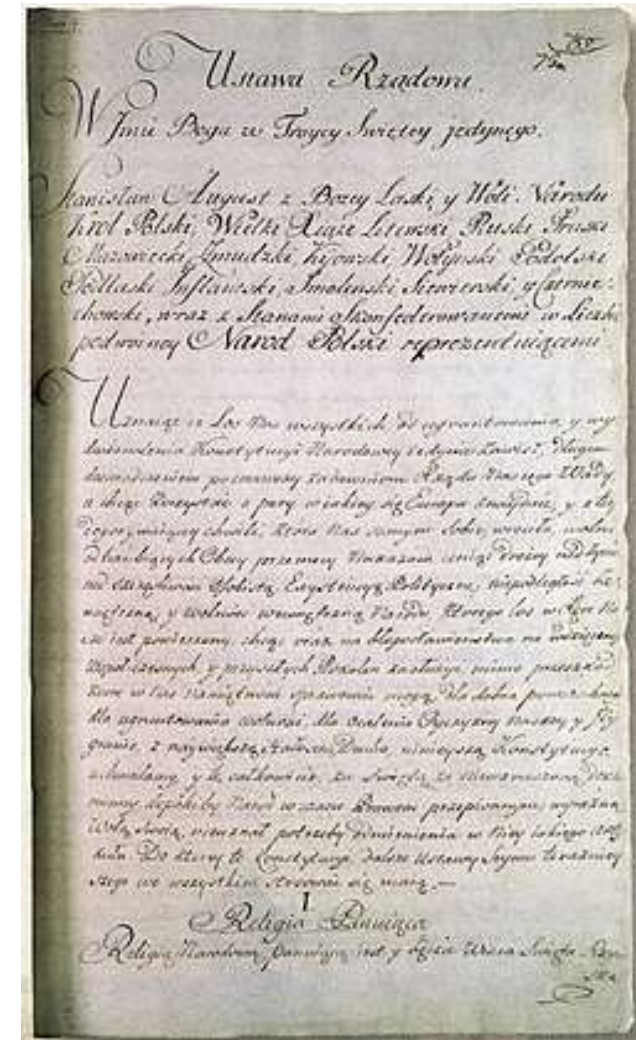 Ustawa Rządowa.
W Jmię Boga w Troycy Swiętey jedynego.
Stanisław August z Bozey Łaski y Woli Narodu
Krol Polski, Wielki Xiąże Litewski, Ruski Pruski
Mazowiecki, Zmudzki, Kijowski Wołynski Podolski
Podlaski Inflantski, Smolenski Siewierski, y Czernie-
chowski, wraz z Stanami Skonfederowanemi w Liczbie
podwoiney Narod Polski reprezentuiącemi
Uznaiąc iż Los Nas wszystkich od ugruntowania y wy
Konstytucyi Narodowey iedynie zawisł, długim
doswiadczeniem poznawszy Rządu Naszego Wady
a chcąc korzystać z pory w iakiey się Europa znayduie, y z tey
chwili, ktora Nas samym Sobie wrocila, wolni
Obcey przemocy Nakazow, ceniąc drożey nad życie
nad Exystencyą Polityczną, niepodległość ze-
wnętrzną, y wolność wewnętrzną Narodu, ktorego los w Ręce Na
sze iest powierzony, chcąc oraz na błogosławienstwo, na
wspołczesnych, y przyszłych Pokolen zasłużyć, mimo przeszkod
ktore w Nas namiętności sprawować mogą, dla dobra
dla ugruntowania wolności dla ocalenia Oyczyzny Naszey y Jey
granic, z naywiększą Stałoscią Ducha, ninieyszą Konstytucyą
uchwalamy, y tę całkowicie za Swiętą, za Niewzruszoną
dopokiby Narod w czasie Prawem przepisanym, wyraźną
Wolą Swoią, nieuznał potrzeby odmienienia w Niey iakiego
Do ktorey to Konstytucyi, dalsze Ustawy Seymu teraznieye
szego we wszystkim stosować się maią. —
I
Religia Panuiąca
Religią Narodową Panuiącą iest y będzie Wiara Swięta